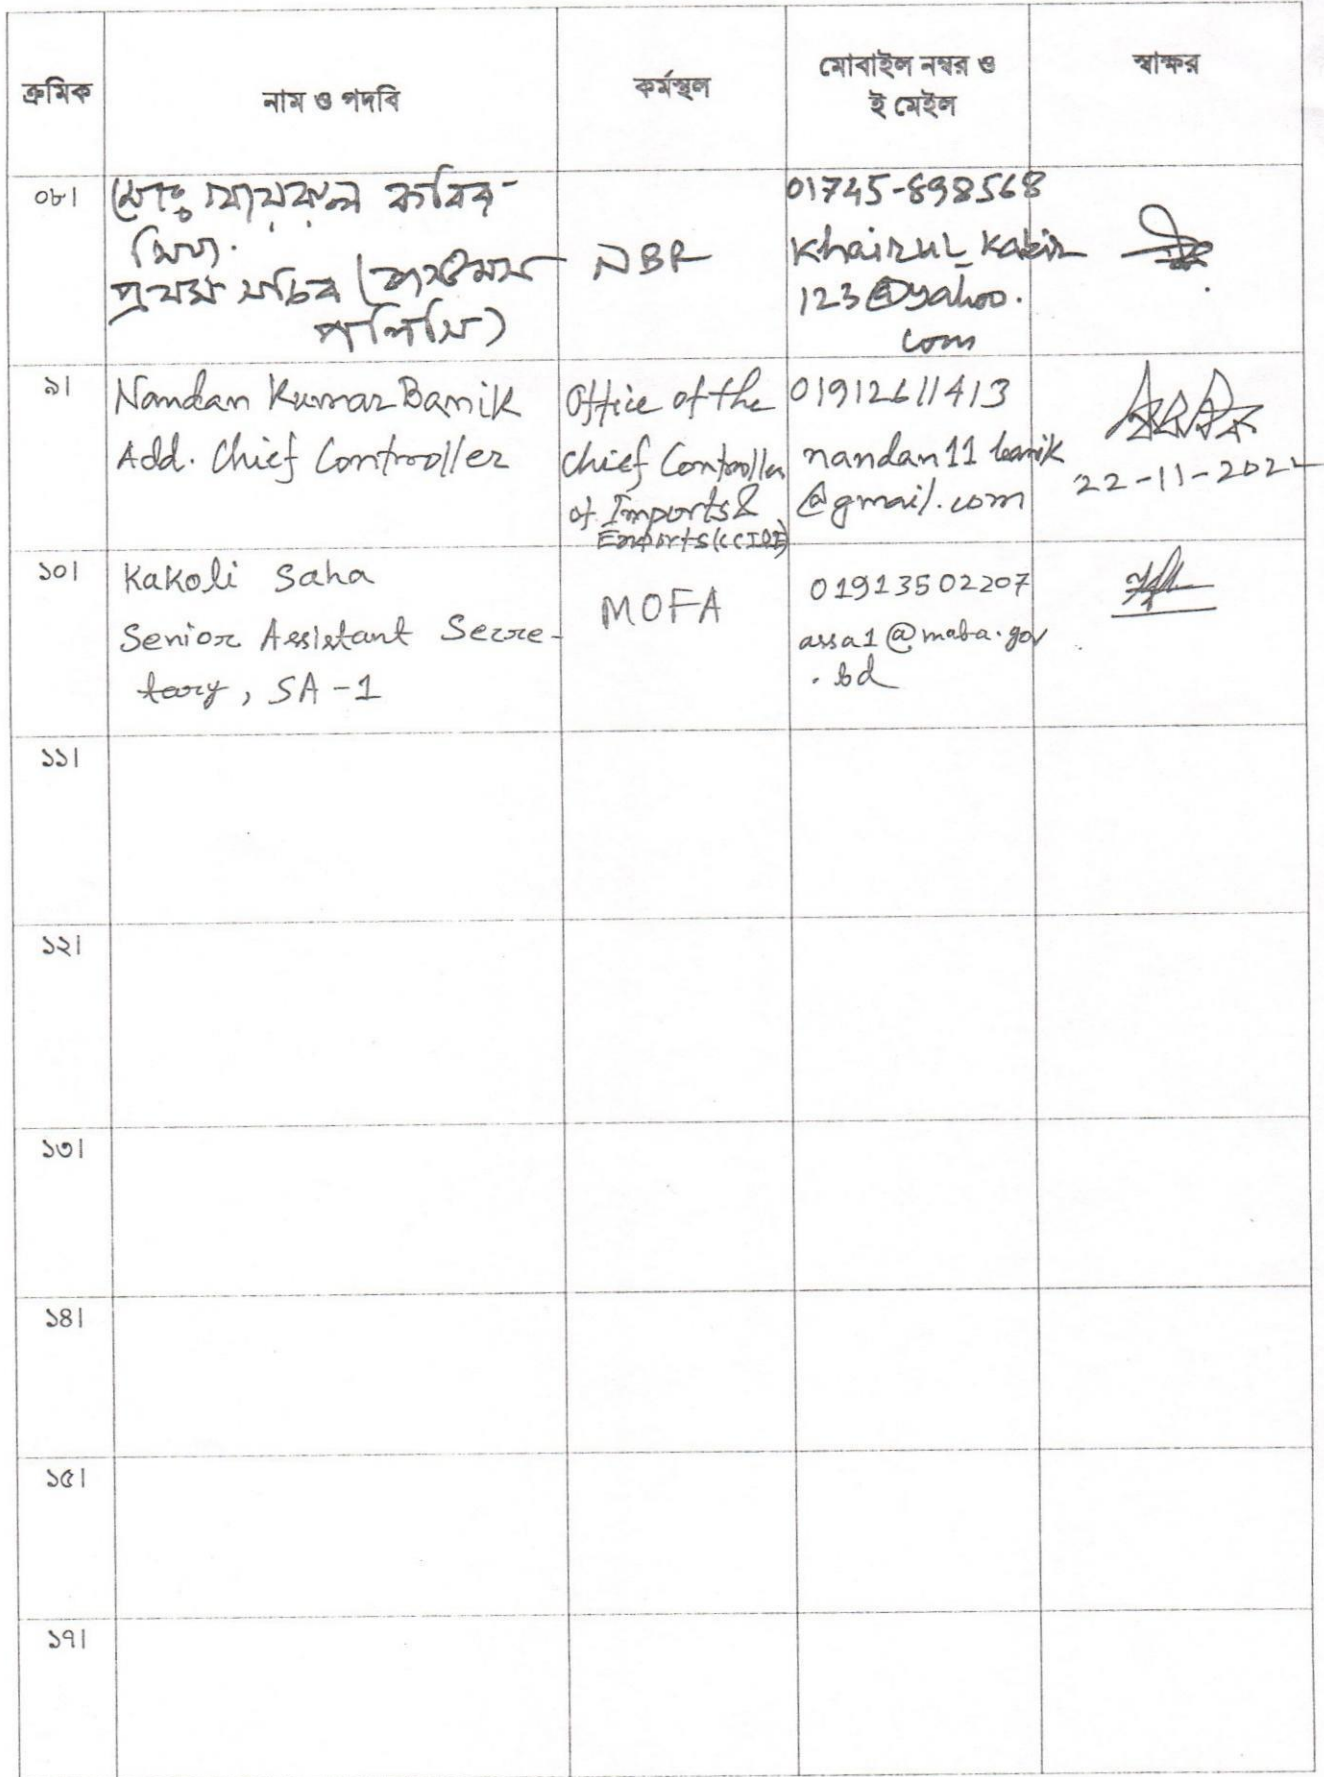 ক্রমিক
নাম ও পদবি
কর্মস্থল
মোবাইল নম্বর ও
ই মেইল
স্বাক্ষর
০৮।
মোঃ খায়রুল কবির
মিয়া.
প্রথম সচিব (কাস্টমস
পলিসি)
NBR
01745-898568
Khairul_Kabir
123@yahoo.
com
৯।
Nandan Kumar Banik
Add. Chief Controller
Office of the
Chief Controller
of Imports &
Exports (CCI&E)
01912611413
nandan11 banik
@gmail.com
22-11-2022
১০।
Kakoli Saha
Senior Assistant Secre-
tary, SA-1
MOFA
01913502207
assa1@mofa.gov
.bd
১১।
১২।
১৩।
১৪।
১৫।
১৭।